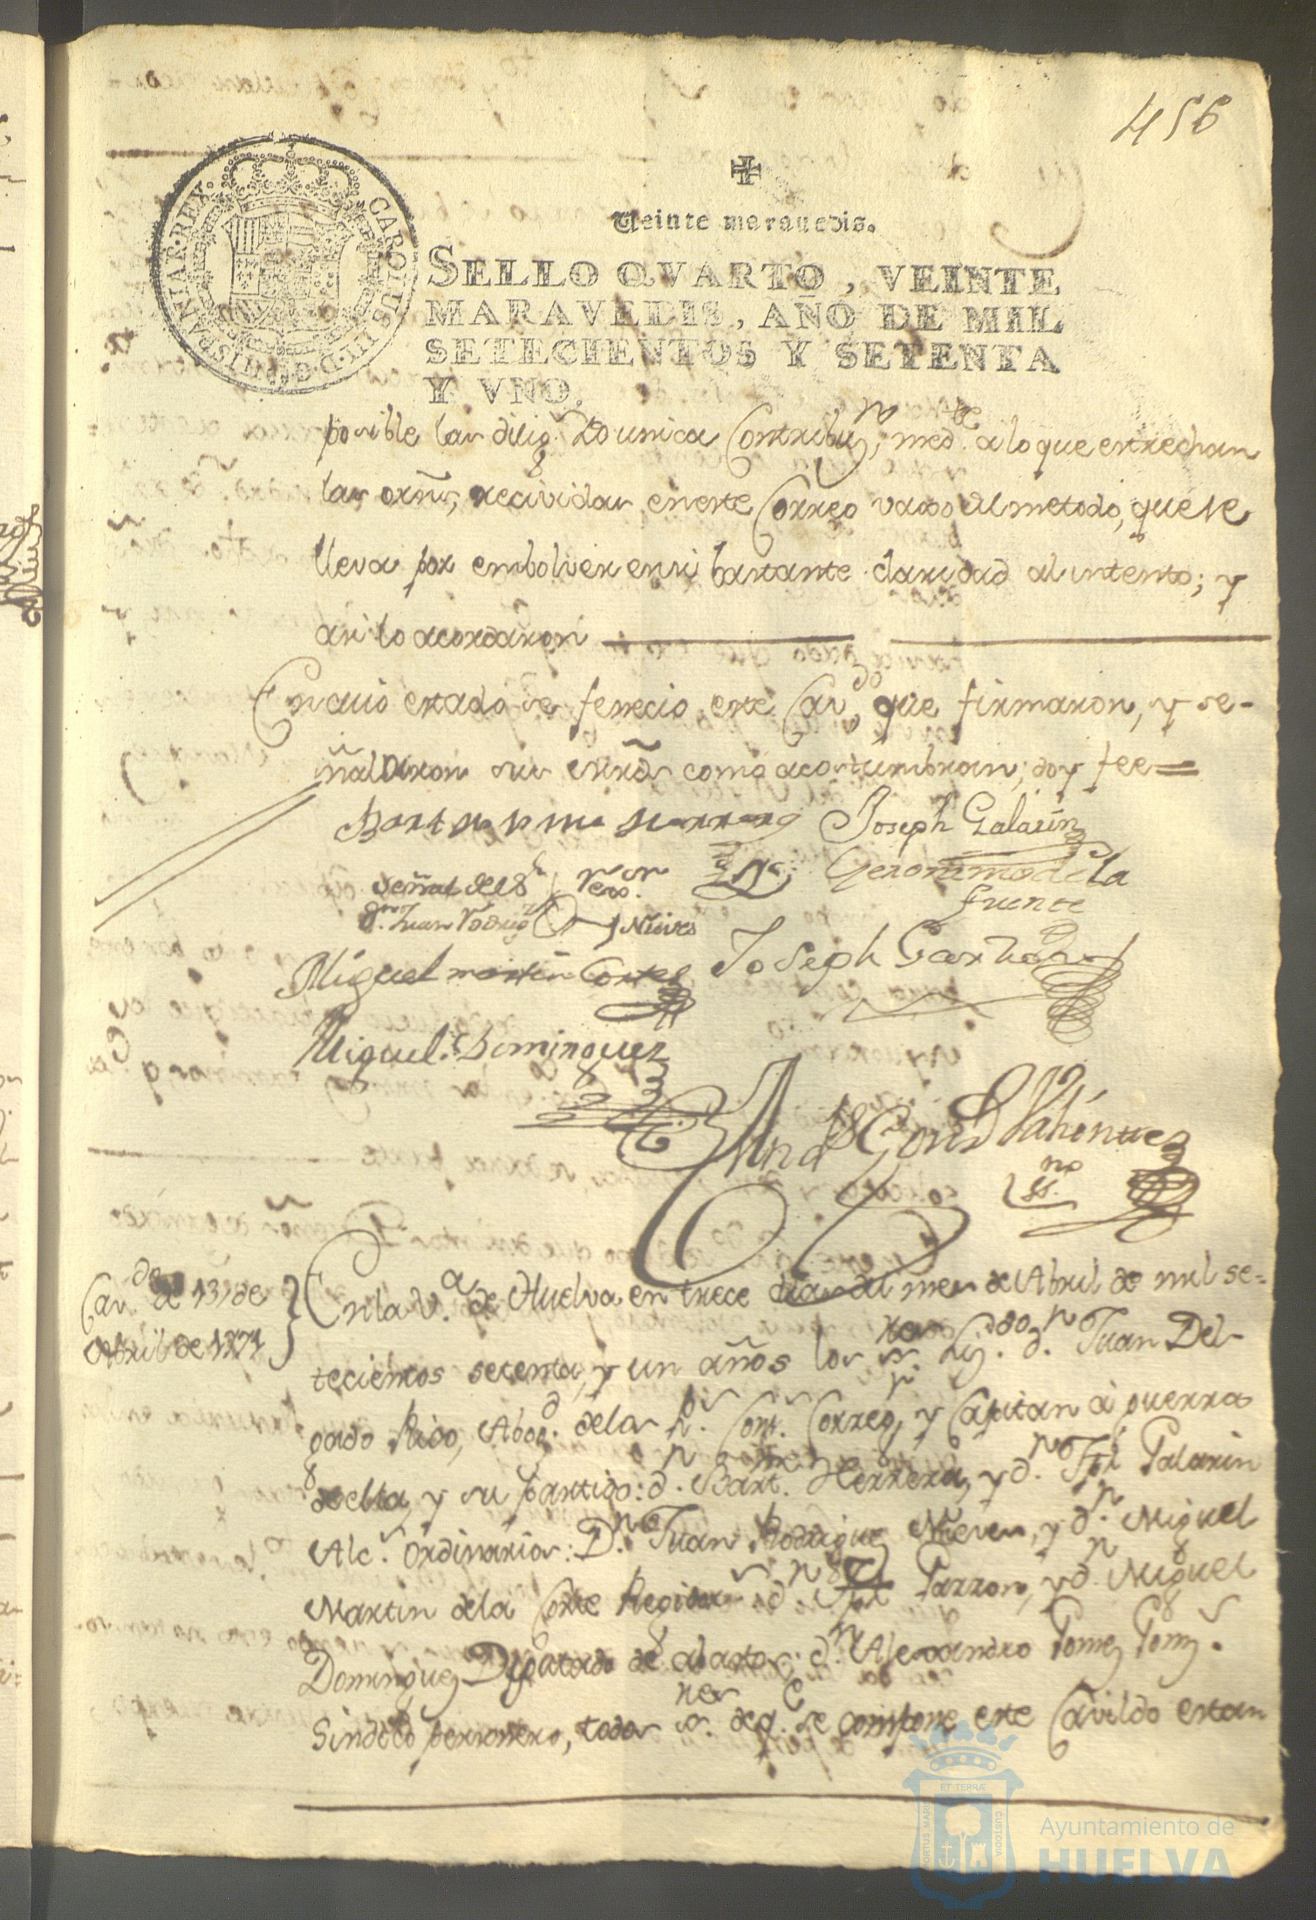 456
CAROLUS III D G HISPANIAR REX
Veinte marauedis.
SELLO QVARTO, VEINTE
MARAVEDIS, AÑO DE MIL
SETECIENTOS Y SETENTA
Y VNO.
posible las dilig.s de unica Contribuz.n, med.te a lo que estrechan
las orñs, recividas en este Correo vaxo el metodo, que se
lleva por embolver en si bastante claridad al intento; y
asi lo acordaron
En cuio estado se fenecio este Cav.do que firmaron, y se-
ñalaron sus mrds como acostumbran; doy fee=
Bartolome Herrera Joseph Galarin
señal del S.r Rexor. Geronimo de la
D.n Juan Rodrig.z Nieves fuente
Miguel martin Cortes Joseph Garzon
Miguel Dominguez
And.s Gons
Cav.do de 13 de
Abril de 1771
En la V.a de Huelva en trece dias del mes de Abril de mil se=
tecientos setenta, y un años los s.res Liz.do d.n Juan Del-
gado Rizo, Abog.do de los r.s Cons. Correg.r y Capitan à guerra
de ella, y su partido: d.n Bart.me Herrera, y d.n Jph Galarin
Alc.s ordinarios: D.n Juan Rodrigue Nieves, y d.n Miguel
Martin de la Corte Regidor.s d.n Jph Garzon, y d.n Miguel
Dominguez Diputado de abastos: d.n Alexandro Gomez Gonz.
Sindico personero, todos s.res de q.e se compone este Cavildo estan
PORTUS MARIS ET TERRÆ CUSTODIA
Ayuntamiento de
HUELVA